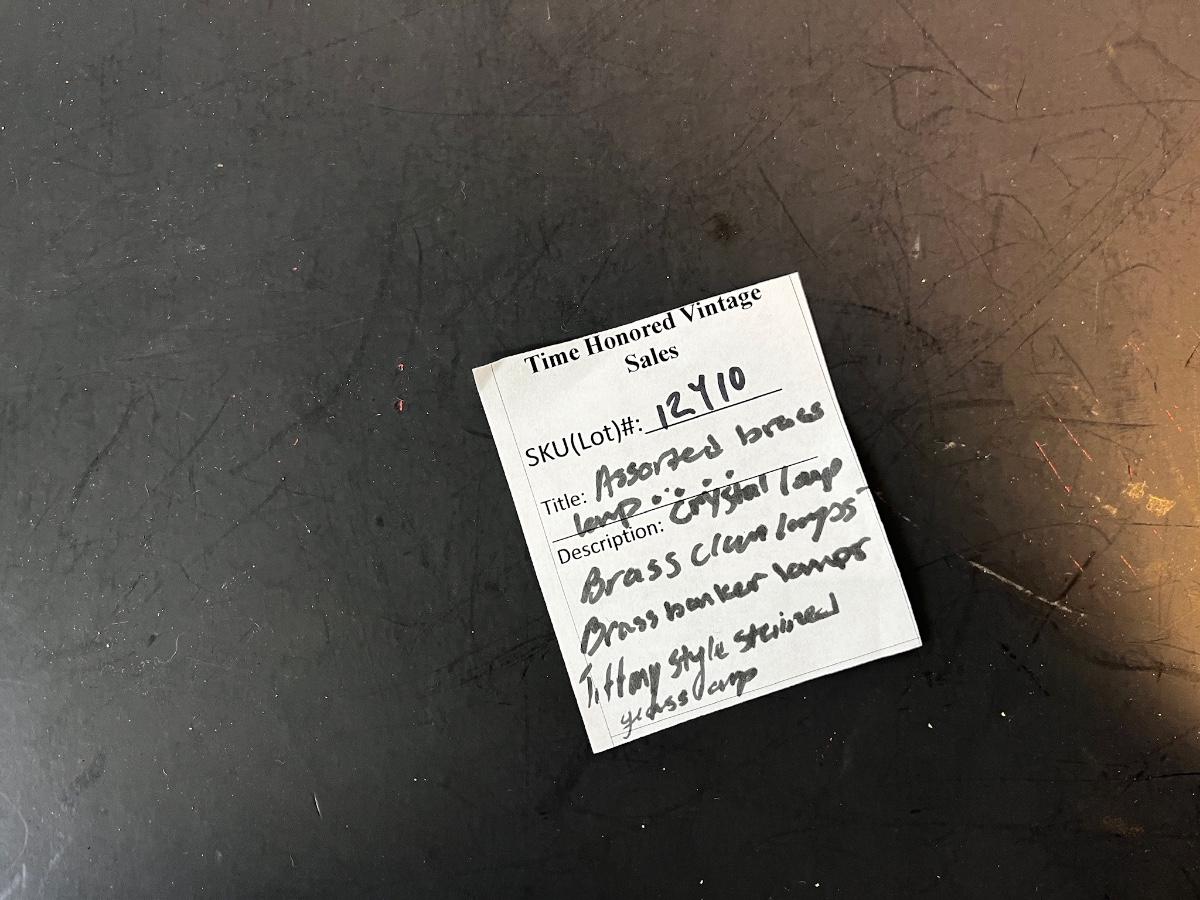 Time Honored Vintage
Sales
SKU(Lot)#: 12Y10
Title: Assorted brass
lamp
Description: Crystal lamp
Brass lamps
Brass banker lamps
Tiffany style stained
glass lamp